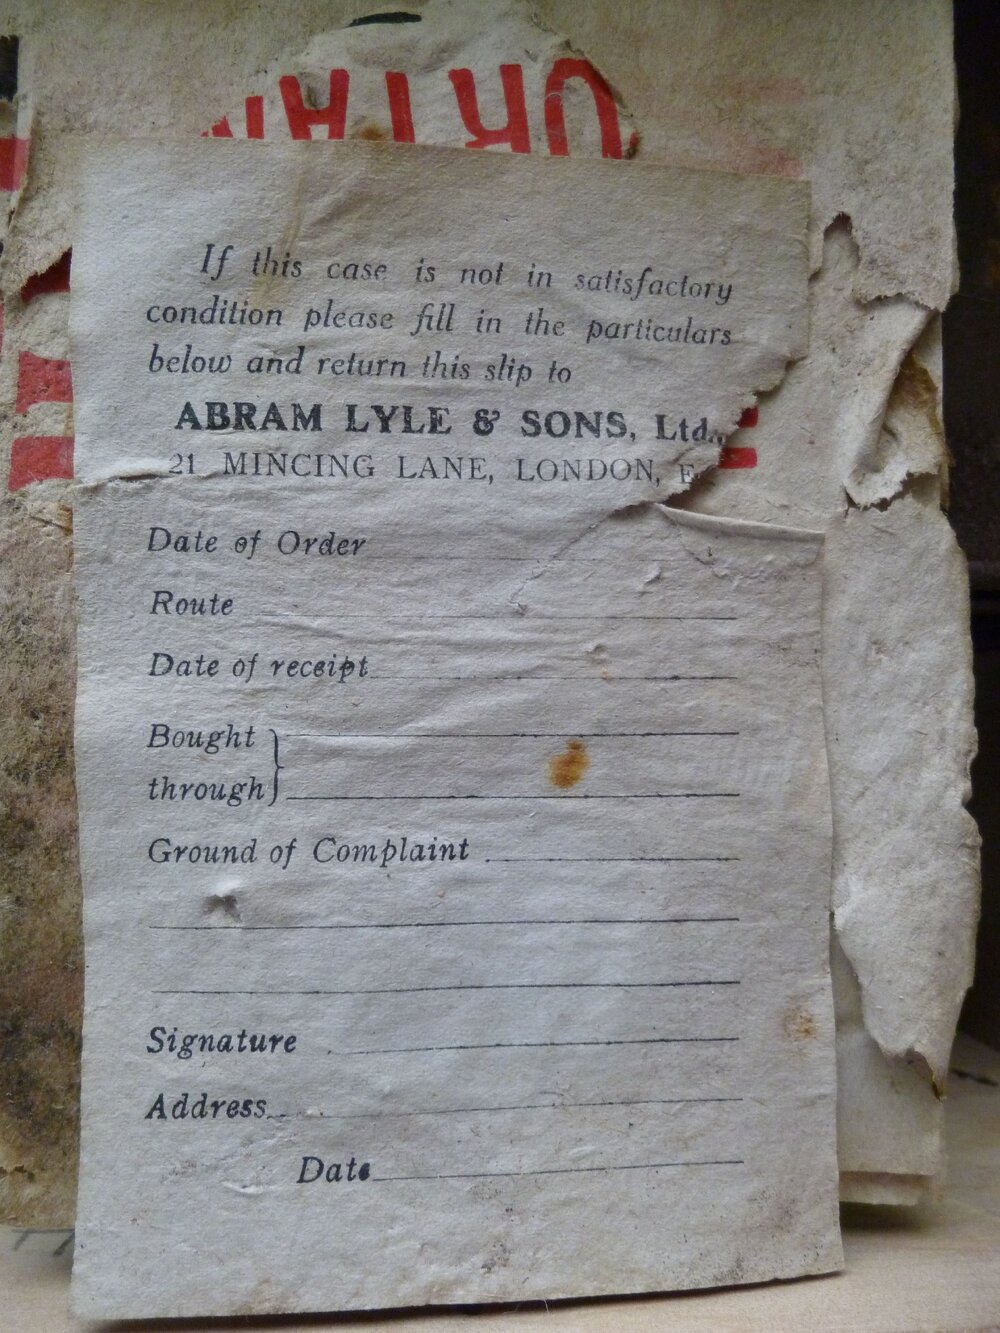 If this case is not in satisfactory
condition please fill in the particulars
below and return this slip to
ABRAM LYLE & SONS, Ltd.,
21 MINCING LANE, LONDON, E
Date of Order
Route
Date of receipt
Bought
through
Ground of Complaint
Signature
Address
Date